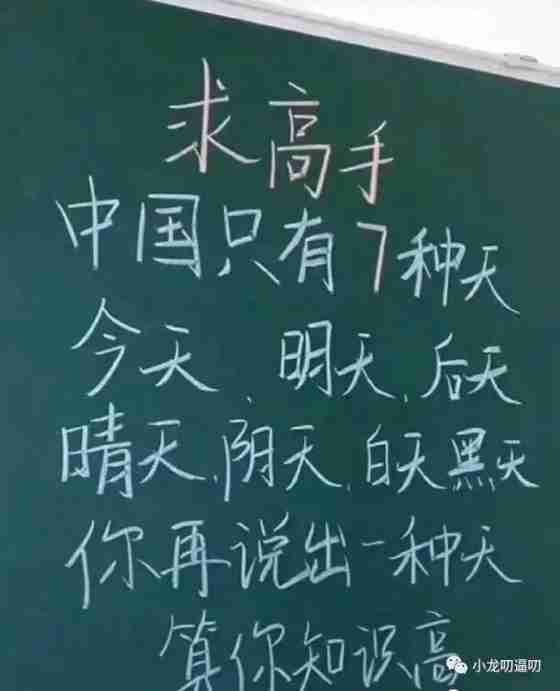 求高手
中国只有7种天
今天、明天、后天
晴天、阴天、白天黑天
你再说出一种天
算你知识高
小龙叨逼叨